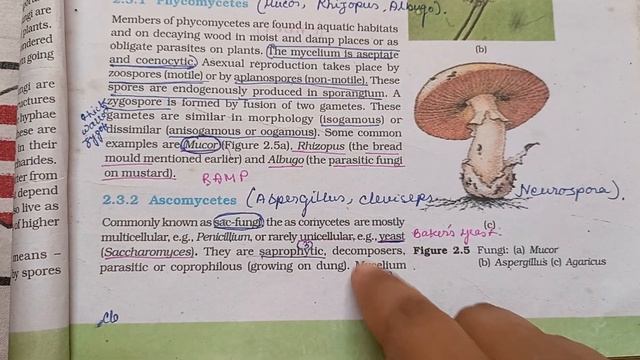 2.3.1 Phycomycetes (Mucor, Rhizopus, Albugo).
Members of phycomycetes are found in aquatic habitats
and on decaying wood in moist and damp places or as
obligate parasites on plants. The mycelium is aseptate
and coenocytic. Asexual reproduction takes place by
zoospores (motile) or by aplanospores (non-motile). These
spores are endogenously produced in sporangium. A
zygospore is formed by fusion of two gametes. These
gametes are similar in morphology (isogamous) or
dissimilar (anisogamous or oogamous). Some common
examples are Mucor (Figure 2.5a), Rhizopus (the bread
mould mentioned earlier) and Albugo (the parasitic fungi
on mustard).
BAMP
2.3.2 Ascomycetes (Aspergillus, claviceps Neurospora).
Commonly known as sac-fungi, the as comycetes are mostly
multicellular, e.g., Penicillium, or rarely unicellular, e.g., yeast
(Saccharomyces). They are saprophytic, decomposers,
parasitic or coprophilous (growing on dung). Mycelium
thick
walled
(b)
(c)
Baker's yeast.
Figure 2.5 Fungi: (a) Mucor
(b) Aspergillus (c) Agaricus
ngi are
plants.
ndered
m going
ngi are
uctures
hyphae
ese are
in their
harides.
ter from
depend
so live as
of higher
means –
by spores